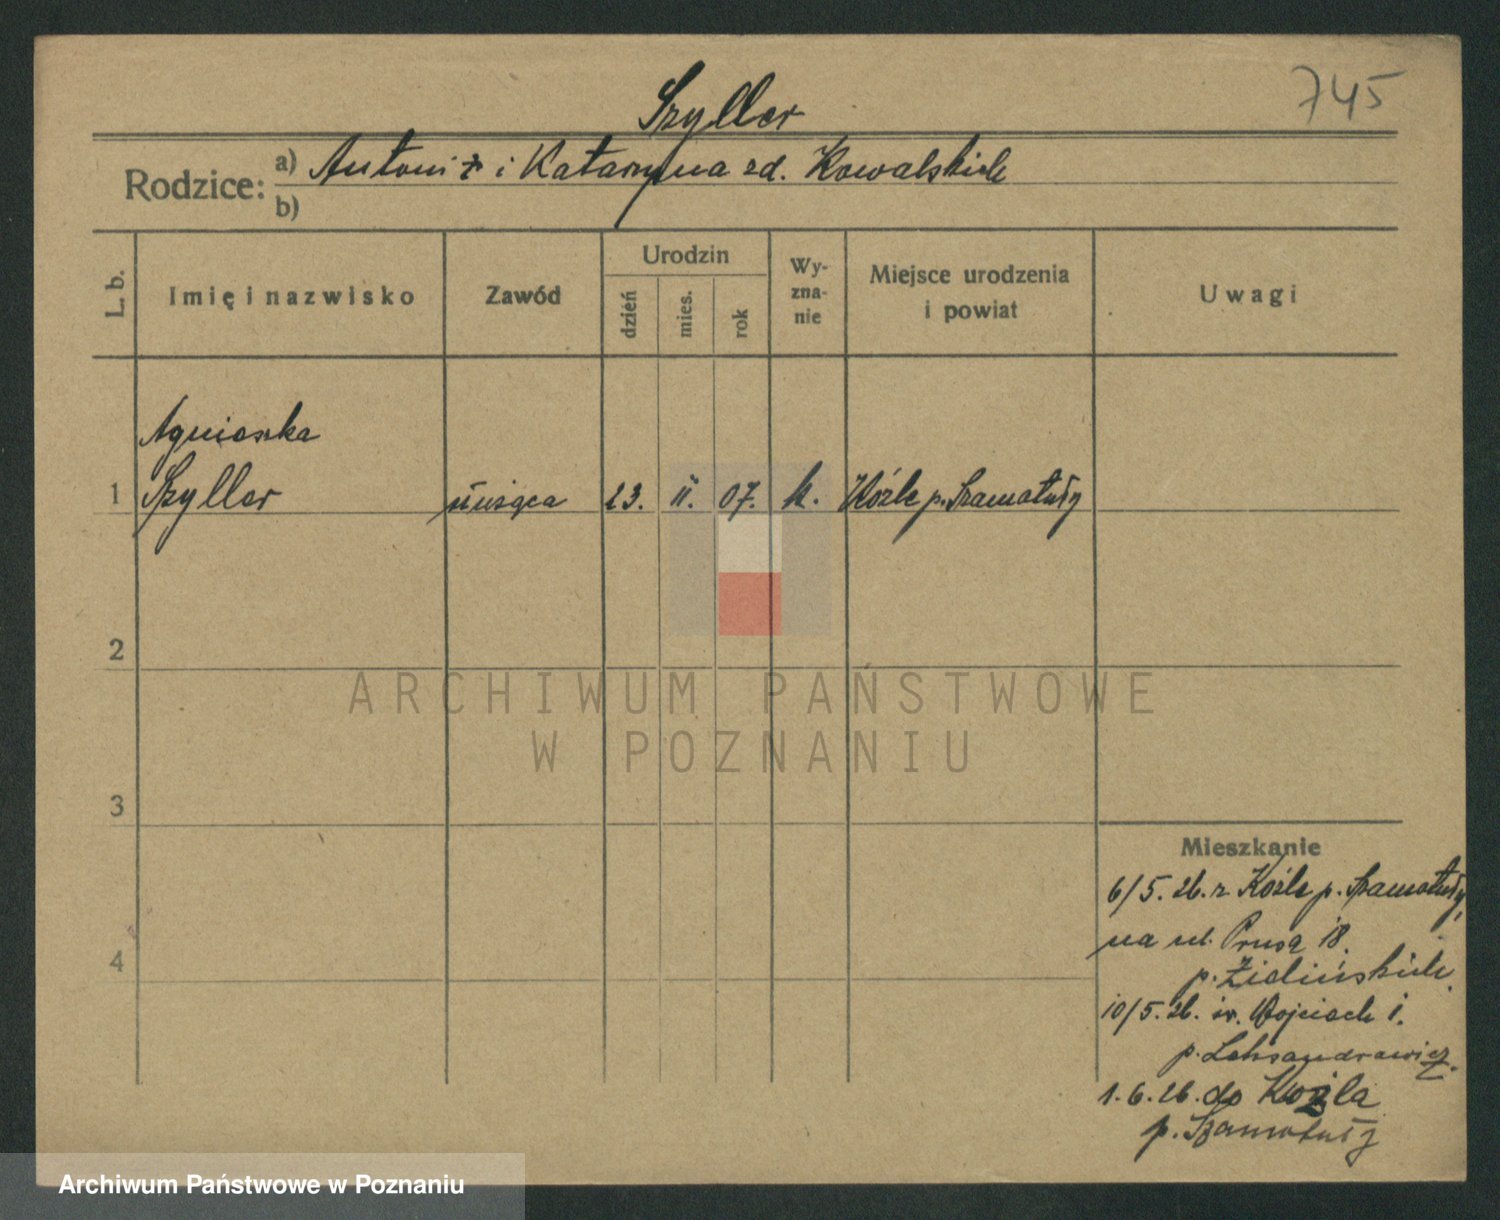 745
Szyller
Rodzice: a) Antoni ż i Katarzyna zd. Kowalskich
b)
L. b.
Imię i nazwisko
Zawód
Urodzin
dzień
mies.
rok
Wy-
zna-
nie
Miejsce urodzenia
i powiat
Uwagi
Agnieszka
1 Szyller służąca 23. II. 07. k. Koźle p. Szamotuły
2
3
4
ARCHIWUM PAŃSTWOWE
W POZNANIU
Mieszkanie
6/5. 26. z Koźle p. Szamotuły,
na ul. Prusa 18.
p. Zielińskich.
10/5. 26. św. Wojciech 1.
p. Leksandrowicz.
1. 6. 26. do Koźla
p. Szamotuły
Archiwum Państwowe w Poznaniu